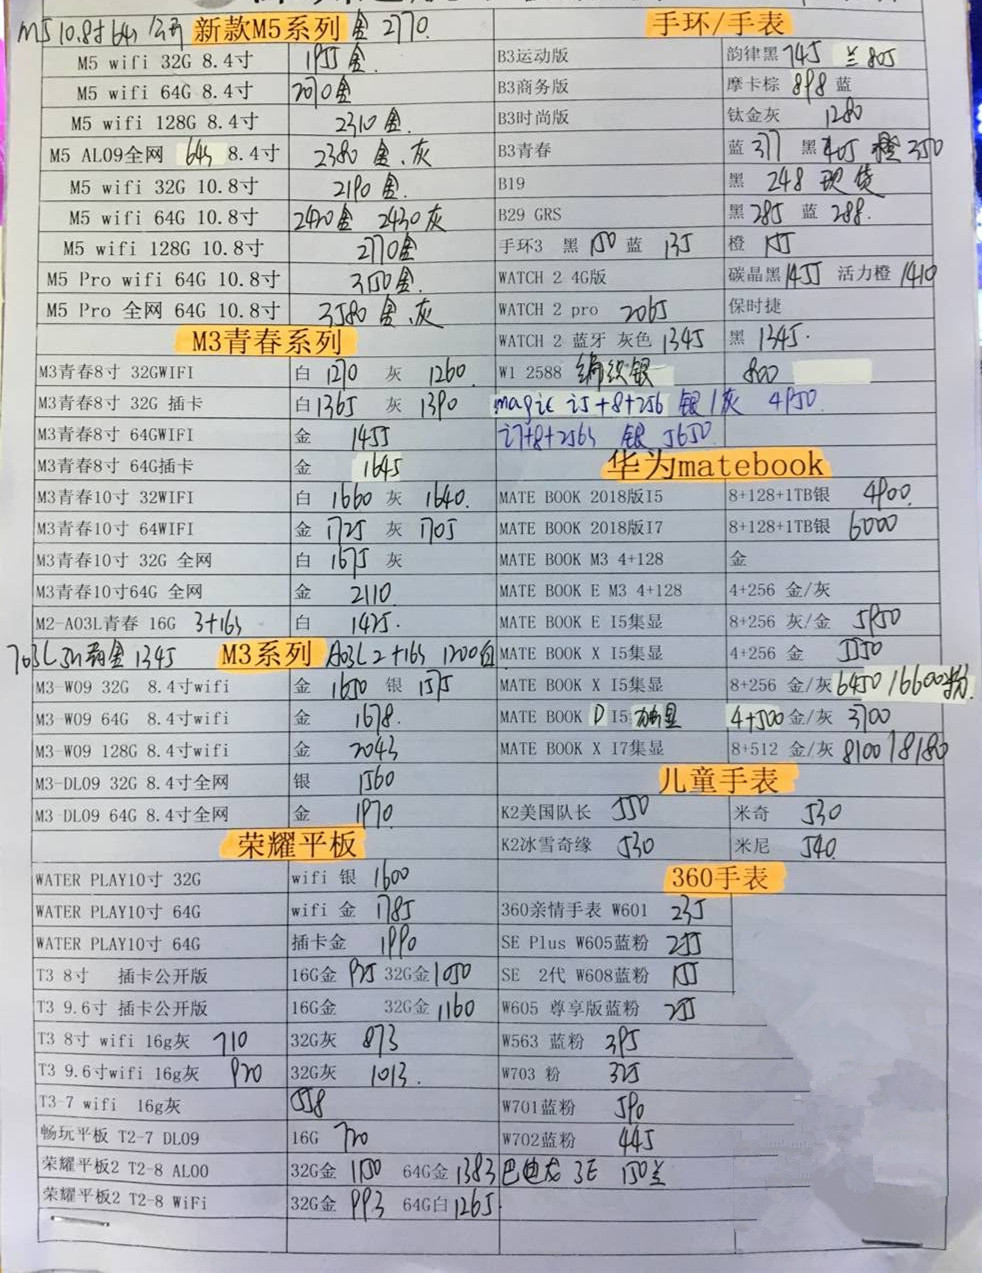 M5 10.8寸 64G 公开 新款M5系列 金 2770.
M5 wifi 32G 8.4寸 1955 金.
M5 wifi 64G 8.4寸 2070金
M5 wifi 128G 8.4寸 2310 金.
M5 AL09全网 64G 8.4寸 2380 金、灰
M5 wifi 32G 10.8寸 2190 金.
M5 wifi 64G 10.8寸 2420金 2430灰
M5 wifi 128G 10.8寸 2770金
M5 Pro wifi 64G 10.8寸 3150金.
M5 Pro 全网 64G 10.8寸 3580 金、灰
M3青春系列
M3青春8寸 32GWIFI 白 1270 灰 1260.
M3青春8寸 32G 插卡 白 1365 灰 1390
M3青春8寸 64GWIFI 金 1455
M3青春8寸 64G插卡 金 1645
M3青春10寸 32WIFI 白 1660 灰 1640.
M3青春10寸 64WIFI 金 1725 灰 1705
M3青春10寸 32G 全网 白 1675 灰
M3青春10寸64G 全网 金 2110
M2-A03L青春 16G 3+16G 白 1425.
M3系列 A03L 2+16G 1200白
M3-W09 32G 8.4寸wifi 金 1650 银 1575
M3-W09 64G 8.4寸wifi 金 1678.
M3-W09 128G 8.4寸wifi 金 2043
M3-DL09 32G 8.4寸全网 银 1560
M3-DL09 64G 8.4寸全网 金 1970
荣耀平板
WATER PLAY10寸 32G wifi 银 1600
WATER PLAY10寸 64G wifi 金 1785
WATER PLAY10寸 64G 插卡金 1990
T3 8寸 插卡公开版 16G金 925 32G金 1050
T3 9.6寸 插卡公开版 16G金 32G金 1160
T3 8寸 wifi 16g灰 710 32G灰 873
T3 9.6寸wifi 16g灰 920 32G灰 1013.
T3-7 wifi 16g灰 558
畅玩平板 T2-7 DL09 16G 720
荣耀平板2 T2-8 AL00 32G金 1150 64G金 1383
荣耀平板2 T2-8 WiFi 32G金 993 64G白 1265
手环/手表
B3运动版 韵律黑 745 兰 805
B3商务版 摩卡棕 898 蓝
B3时尚版 钛金灰 1280
B3青春 蓝 377 黑 405 橙 350
B19 黑 248 现货
B29 GRS 黑 285 蓝 288.
手环3 黑 150 蓝 135 橙 155
WATCH 2 4G版 碳晶黑 1455 活力橙 1410
WATCH 2 pro 2065 保时捷
WATCH 2 蓝牙 灰色 1345 黑 1345.
W1 2588 编织银 800
magic i5+8+256 银/灰 4950
i7+8+256G 银 5650
华为matebook
MATE BOOK 2018版I5 8+128+1TB银 4900.
MATE BOOK 2018版I7 8+128+1TB银 6000
MATE BOOK M3 4+128 金
MATE BOOK E M3 4+128 4+256 金/灰
MATE BOOK E I5集显 8+256 灰/金 5950
MATE BOOK X I5集显 4+256 金 5550
MATE BOOK X I5集显 8+256 金/灰 6450/6600粉.
MATE BOOK D I5 独显 4+500 金/灰 3700
MATE BOOK X I7集显 8+512 金/灰 8100/8180
儿童手表
K2美国队长 550 米奇 530
K2冰雪奇缘 530 米尼 540.
360手表
360亲情手表 W601 235
SE Plus W605蓝粉 255
SE 2代 W608蓝粉 155
W605 尊享版蓝粉 255
W563 蓝粉 395
W703 粉 325
W701蓝粉 590
W702蓝粉 445
巴迪龙 3E 150兰